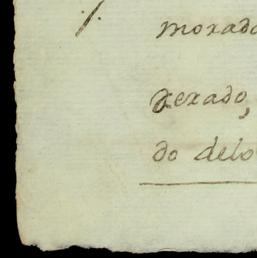 morado
xerado,
do delo